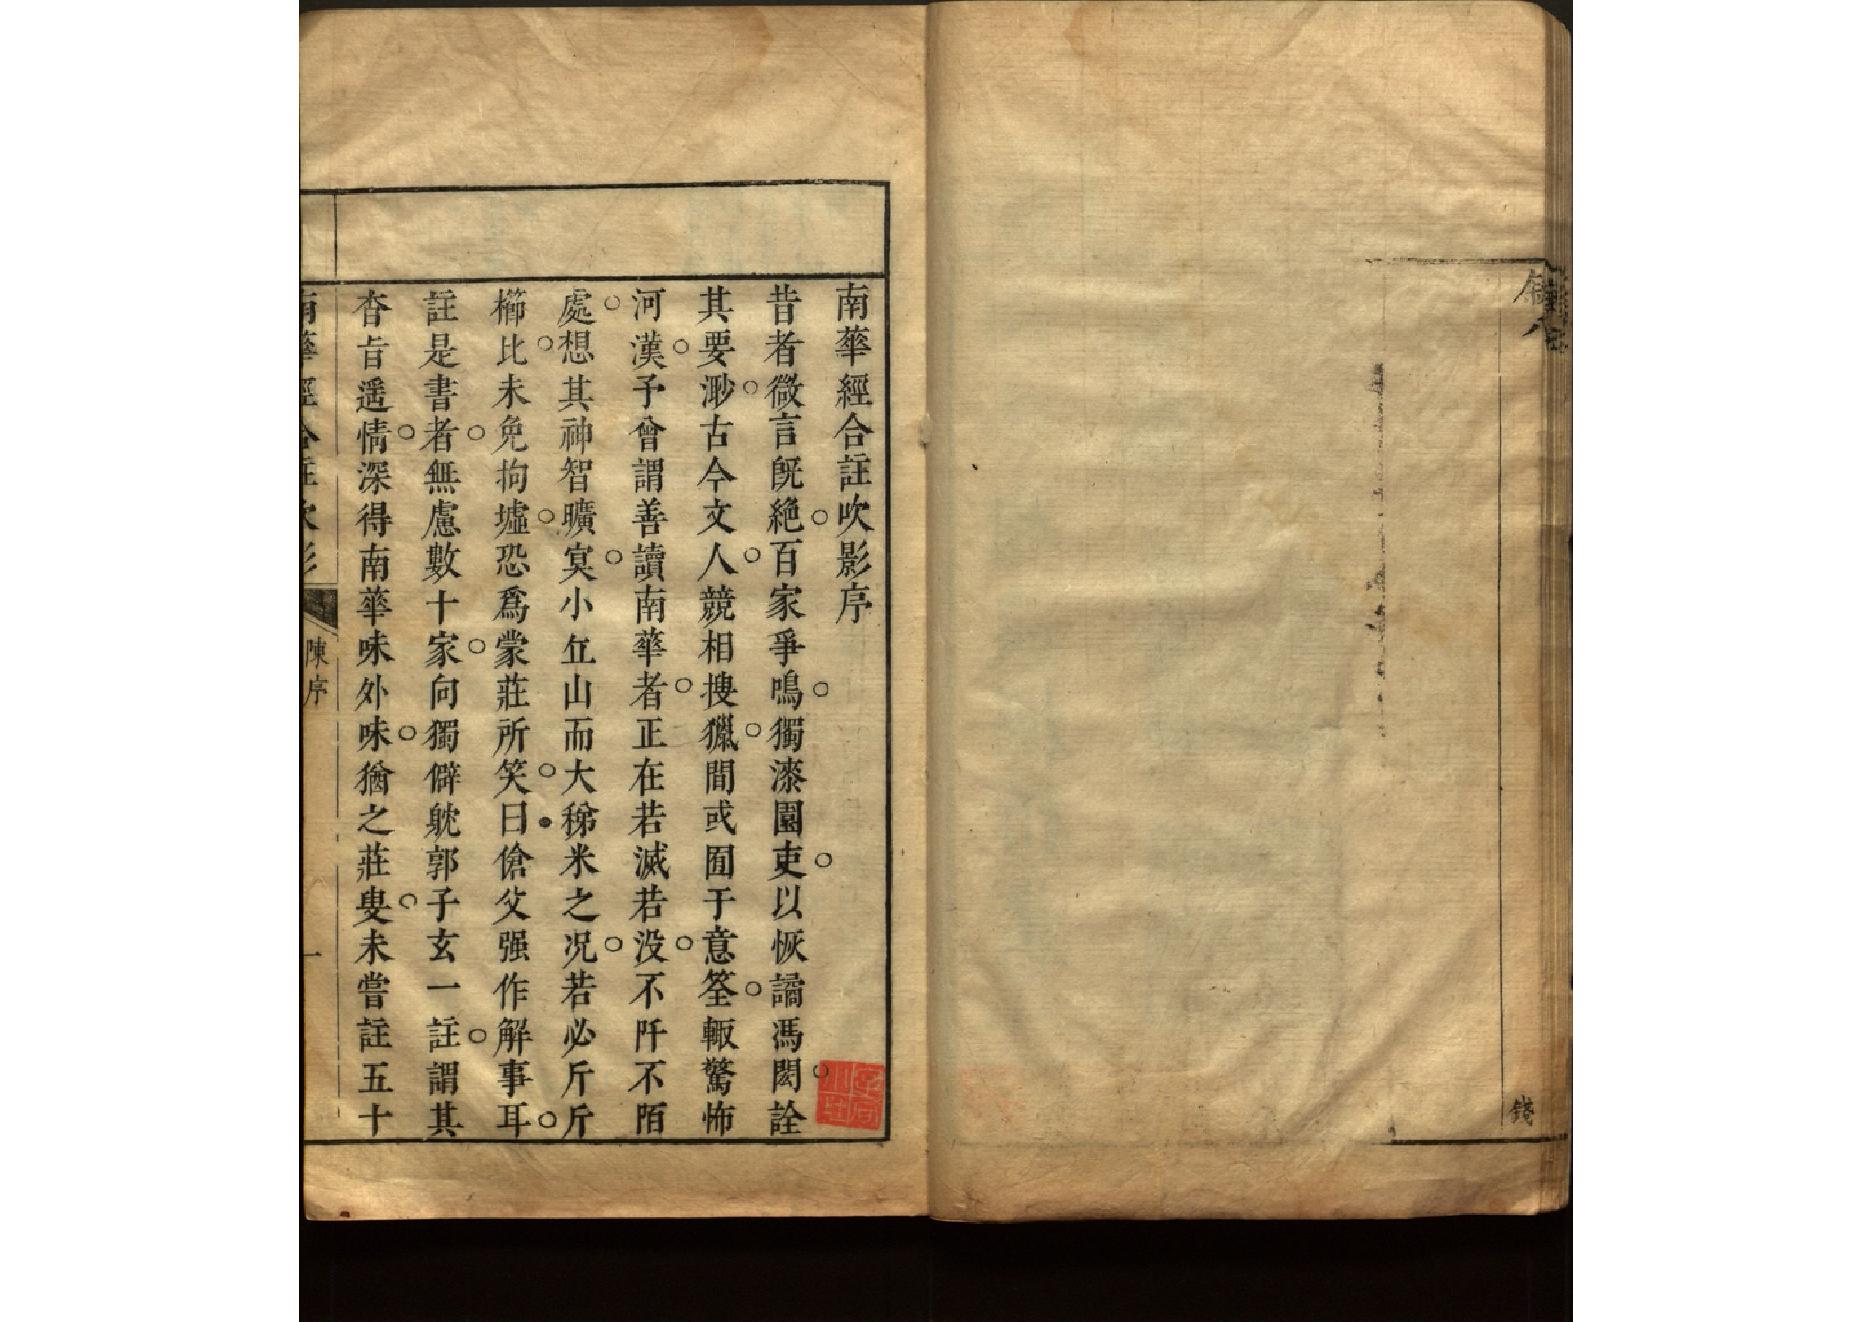 錢
南華經合註吹影序
昔者微言旣絕百家爭鳴獨漆園吏以恢譎馮閎詮
其要渺古今文人競相搜獵間或囿于意筌輙驚怖
河漢予曾謂善讀南華者正在若滅若没不阡不陌
處想其神智曠㝠小丘山而大稊米之况若必斤斤
櫛比未免拘墟恐爲蒙莊所笑曰傖父强作解事耳
註是書者無慮數十家向獨僻躭郭子玄一註謂其
杳旨遥情深得南華味外味猶之莊叟未嘗註五十
南華經合註吹影
陳序
一